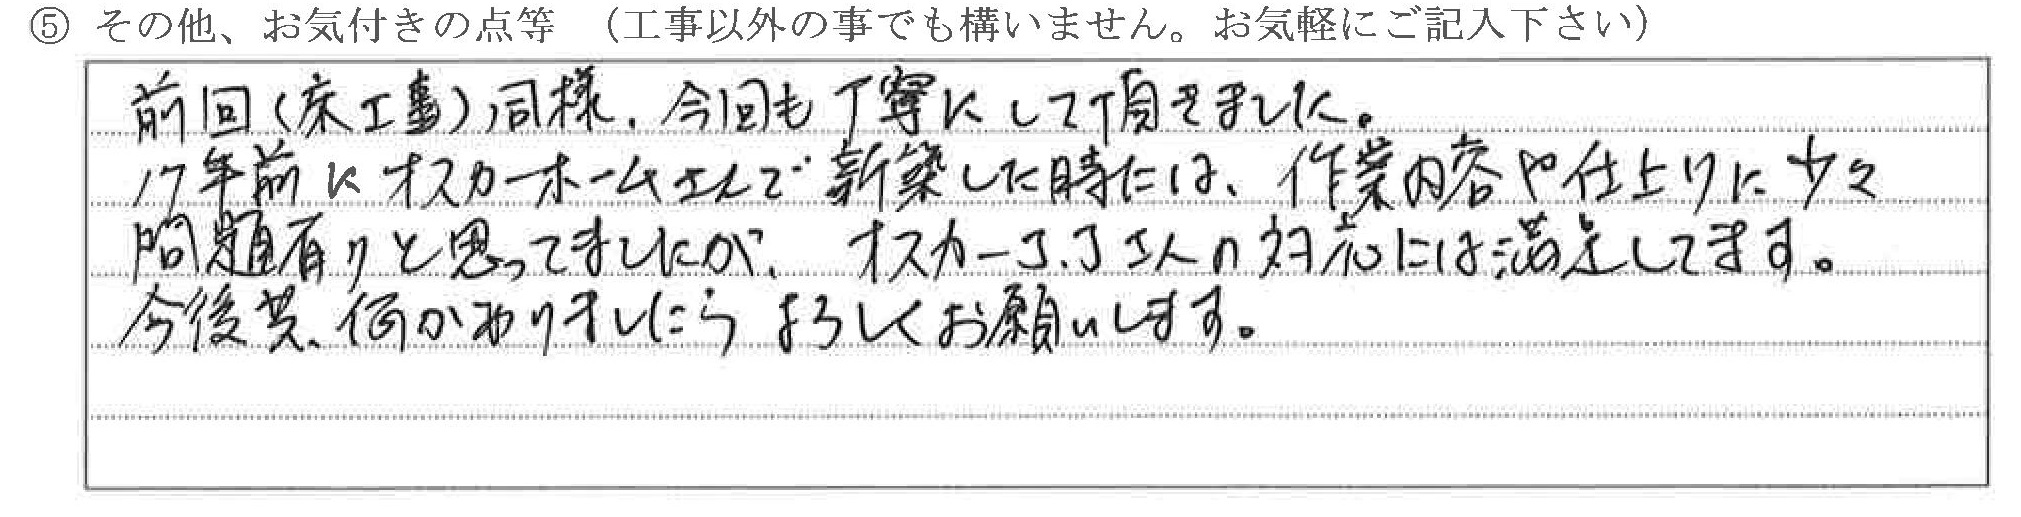 ⑤ その他、お気付きの点等 （工事以外の事でも構いません。お気軽にご記入下さい）
前回(床工事)同様、今回も丁寧にして頂きました。
17年前にオスカーホームさんで新築した時には、作業内容や仕上りに少々
問題有りと思ってましたが、オスカーJ.Jさんの対応には満足してます。
今後共、何かありましたらよろしくお願いします。